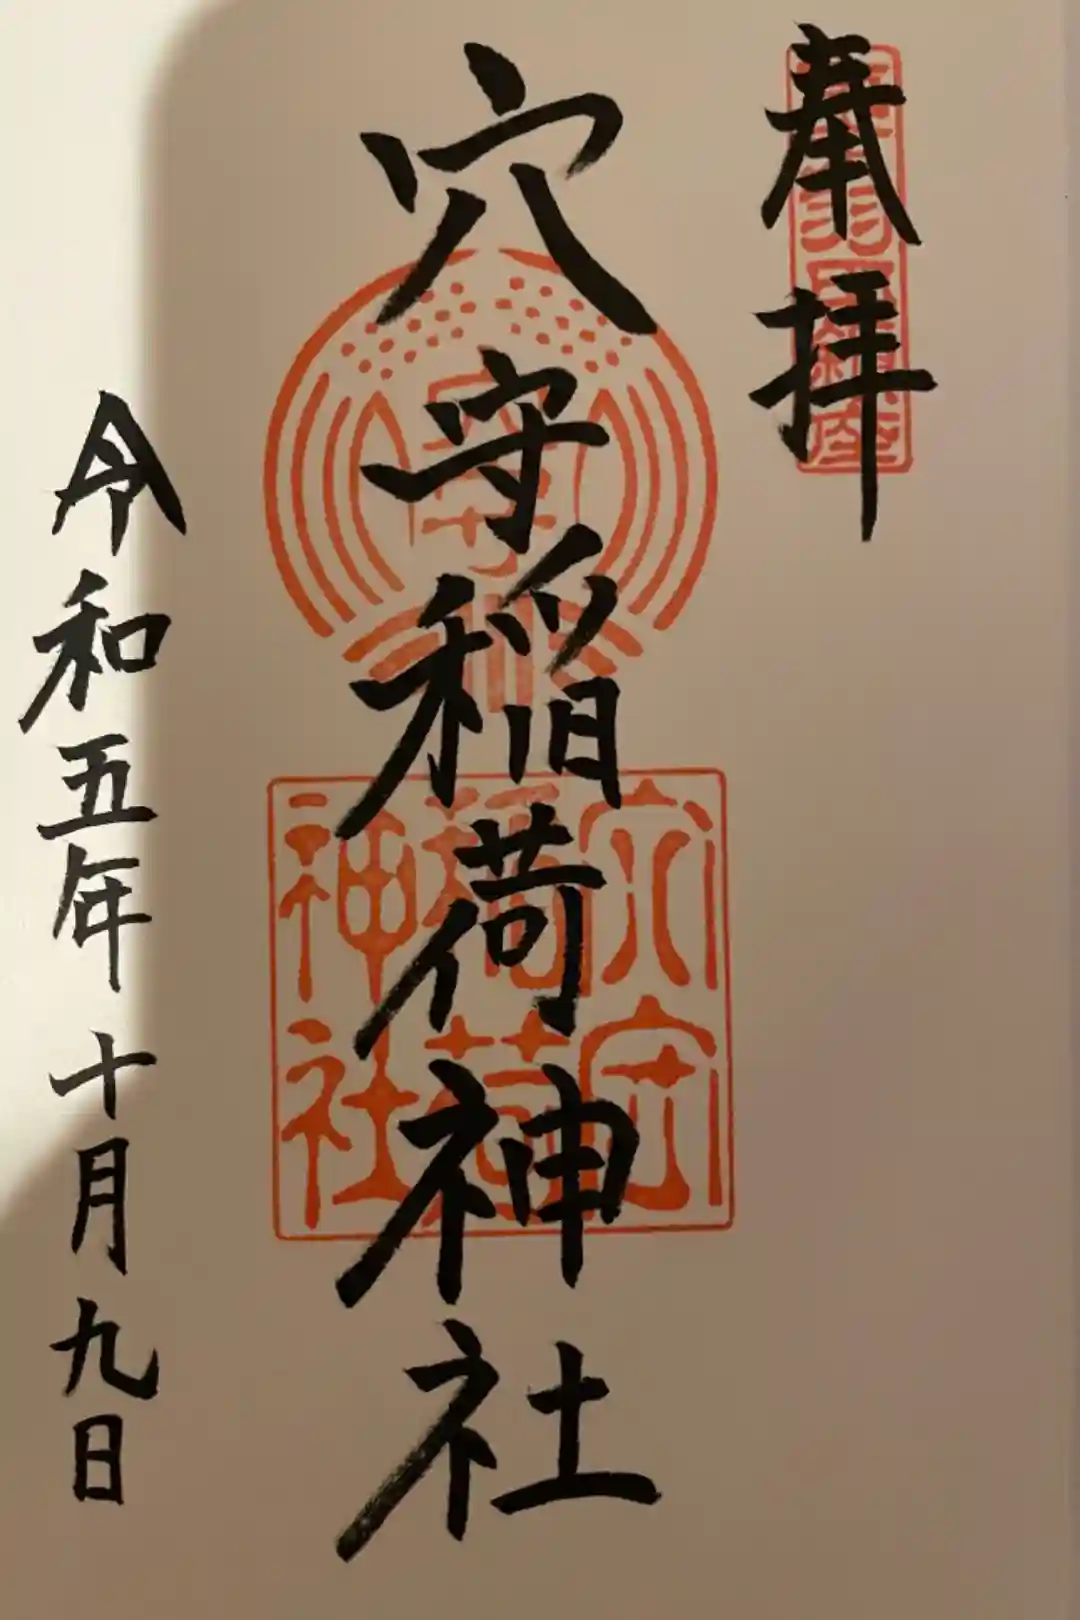 奉拝
穴守稲荷神社
穴守
稲荷
神社
令和五年十月九日